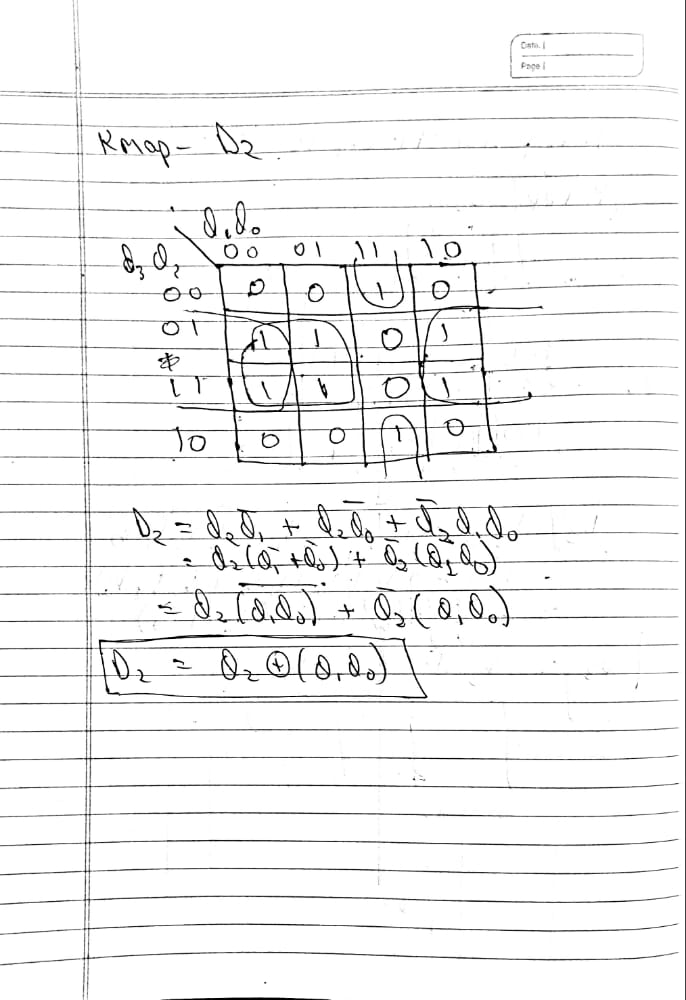 Date. |
Page |
Kmap - D₂
Q₁Q₀
Q₃Q₂ 00 01 11 10
00 0 0 1 0
01 1 1 0 1
11 1 1 0 1
10 0 0 1 0
D₂ = Q₂Q̅₁ + Q₂Q̅₀ + Q̅₂Q₁Q₀
= Q₂(Q̅₁+Q̅₀) + Q̅₂(Q₁Q₀)
= Q₂(\overline{Q₁Q₀}) + Q̅₂(Q₁Q₀)
D₂ = Q₂⊕(Q₁Q₀)